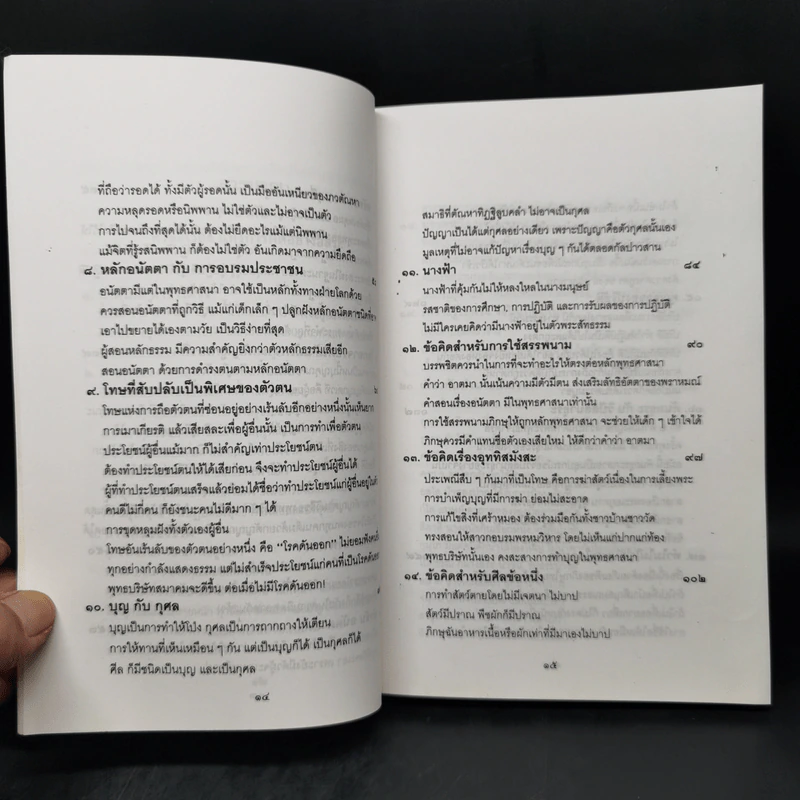 ที่ถือว่ารอดได้ ทั้งมีตัวผู้รอดนั้น เป็นมืออันเหนียวของภวตัณหา
ความหลุดรอดหรือนิพพาน ไม่ใช่ตัวและไม่อาจเป็นตัว
การไปจนถึงที่สุดได้นั้น ต้องไม่ยึดอะไรแม้แต่นิพพาน
แม้จิตที่รู้รสนิพพาน ก็ต้องไม่ใช่ตัว อันเกิดมาจากความยึดถือ
๘. หลักอนัตตา กับ การอบรมประชาชน
อนัตตามีแต่ในพุทธศาสนา อาจใช้เป็นหลักทั้งทางฝ่ายโลกด้วย
ควรสอนอนัตตาที่ถูกวิธี แม้แก่เด็กเล็ก ๆ ปลูกฝังหลักอนัตตาชนิดที่
เอาไปขยายได้เองตามวัย เป็นวิธีง่ายที่สุด
ผู้สอนหลักธรรม มีความสำคัญยิ่งกว่าตัวหลักธรรมเสียอีก
สอนอนัตตา ด้วยการดำรงตนตามหลักอนัตตา
๙. โทษที่สับปลับเป็นพิเศษของตัวตน
โทษแห่งการถือตัวตนที่ซ่อนอยู่อย่างเร้นลับอีกอย่างหนึ่งนั้นเห็นยาก
การเมาเกียรติ แล้วเสียสละเพื่อผู้อื่นนั้น เป็นการทำเพื่อตัวตน
ประโยชน์ผู้อื่นแม้มาก ก็ไม่สำคัญเท่าประโยชน์ตน
ต้องทำประโยชน์ตนให้ได้เสียก่อน จึงจะทำประโยชน์ผู้อื่นได้
ผู้ที่ทำประโยชน์ตนเสร็จแล้วย่อมได้ชื่อว่าทำประโยชน์แก่ผู้อื่นอยู่ใน
คนดีไม่กี่คน ก็ยังชนะคนไม่ดีมาก ๆ ได้
การขุดหลุมฝังทั้งตัวเองผู้อื่น
โทษอันเร้นลับของตัวตนอย่างหนึ่ง คือ “โรคดันออก” ไม่ยอมฟังคนอื่น
ทุกอย่างกำลังแสดงธรรม แต่ไม่สำเร็จประโยชน์แก่คนที่เป็นโรคดันออก
พุทธบริษัทสมาคมจะดีขึ้น ต่อเมื่อไม่มีโรคดันออก!
๑๐. บุญ กับ กุศล
บุญเป็นการทำให้โป่ง กุศลเป็นการถากถางให้เตียน
การให้ทานที่เห็นเหมือน ๆ กัน แต่เป็นบุญก็ได้ เป็นกุศลก็ได้
ศีล ก็มีชนิดเป็นบุญ และเป็นกุศล
๑๔
สมาธิที่ตัณหาทิฏฐิลูบคลำ ไม่อาจเป็นกุศล
ปัญญาเป็นได้แต่กุศลอย่างเดียว เพราะปัญญาคือตัวกุศลนั้นเอง
มูลเหตุที่ไม่อาจแก้ปัญหาเรื่องบุญ ๆ กันได้ตลอดกัลปาวสาน
๑๑. นางฟ้า ๘๔
นางฟ้าที่คุ้มกันไม่ให้หลงใหลในนางมนุษย์
รสชาติของการศึกษา, การปฏิบัติ และการรับผลของการปฏิบัติ
ไม่มีใครเคยคิดว่ามีนางฟ้าอยู่ในตัวพระสัทธรรม
๑๒. ข้อคิดสำหรับการใช้สรรพนาม ๙๐
บรรพชิตควรนำในการที่จะทำอะไรให้ตรงต่อหลักพุทธศาสนา
คำว่า อาตมา นั้นเน้นความมีตัวมีตน ส่งเสริมลัทธิอัตตาของพราหมณ์
คำสอนเรื่องอนัตตา มีในพุทธศาสนาเท่านั้น
การใช้สรรพนามภิกษุให้ถูกหลักพุทธศาสนา จะช่วยให้เด็ก ๆ เข้าใจได้
ภิกษุควรมีคำแทนชื่อตัวเองเสียใหม่ ให้ดีกว่าคำว่า อาตมา
๑๓. ข้อคิดเรื่องอุททิสมังสะ ๙๗
ประเพณีสืบ ๆ กันมาที่เป็นโทษ คือการฆ่าสัตว์เนื่องในการเลี้ยงพระ
การบำเพ็ญบุญที่มีการฆ่า ย่อมไม่สะอาด
การแก้ไขสิ่งที่เศร้าหมอง ต้องร่วมมือกันทั้งชาวบ้านชาววัด
ทรงสอนให้สาวกอบรมพรหมวิหาร โดยไม่เห็นแก่ปากแก่ท้อง
พุทธบริษัทนั้นเอง คงสะสางการทำบุญในพุทธศาสนา
๑๔. ข้อคิดสำหรับศีลข้อหนึ่ง ๑๐๒
การทำสัตว์ตายโดยไม่มีเจตนา ไม่บาป
สัตว์มีปราณ พืชผักก็มีปราณ
ภิกษุฉันอาหารเนื้อหรือผักเท่าที่มีมาเองไม่บาป
๑๕